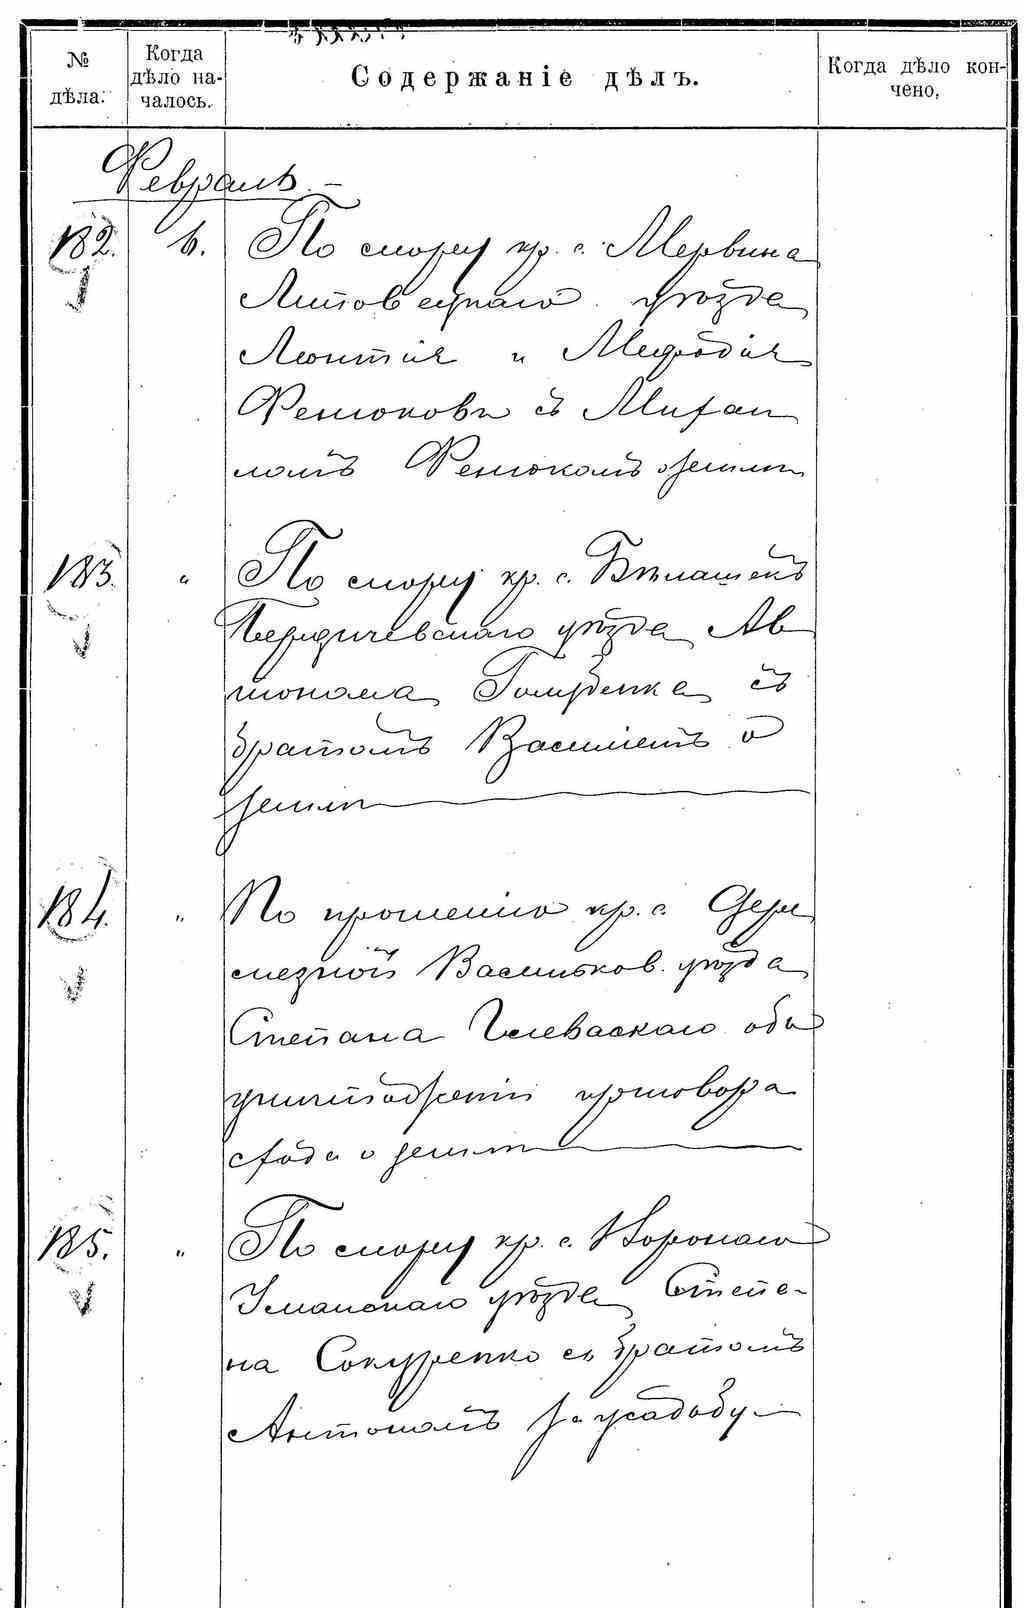 № дѣла.
Когда дѣло на-
чалось.
Содержаніе дѣлъ.
Когда дѣло кон-
чено.
Февраль.
182. 6. По спору кр. с. Мервина
Липовецкаго уѣзда
Леонтія и Мефодія
Фенюковъ съ Михаи
ломъ Фенюкомъ о землѣ
183. " По спору кр. с. Бѣлашекъ
Бердичевскаго уѣзда Ав
тонома Голубенка съ
братомъ Василіемъ о
землѣ
184. " По прошенію кр. с.
Васильков. уѣзда
Степана объ
уничтоженіи приговора
схода о землѣ
185. " По спору кр. с.
Уманскаго уѣзда Степа-
на Сокуренко съ братомъ
Антономъ за усадьбу